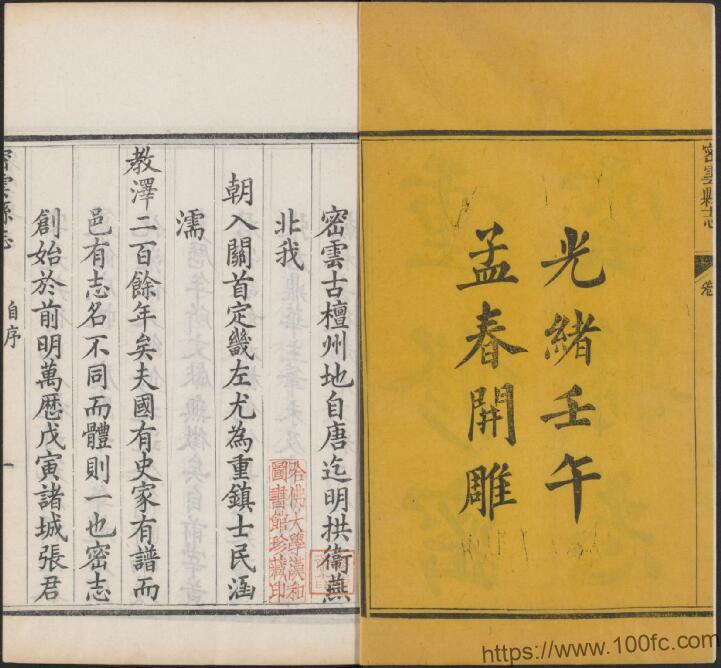 密雲縣志
卷
光緒壬午
孟春開雕
密雲古檀州地自唐迄明拱衞燕
北我
朝入關首定畿左尤為重鎮士民涵
濡
教澤二百餘年矣夫國有史家有譜而
邑有志名不同而體則一也密志
創始於前明萬歷戊寅諸城張君
密雲縣志
自序
一
哈佛大學漢和
圖書館珍藏印
https://www.100fc.com